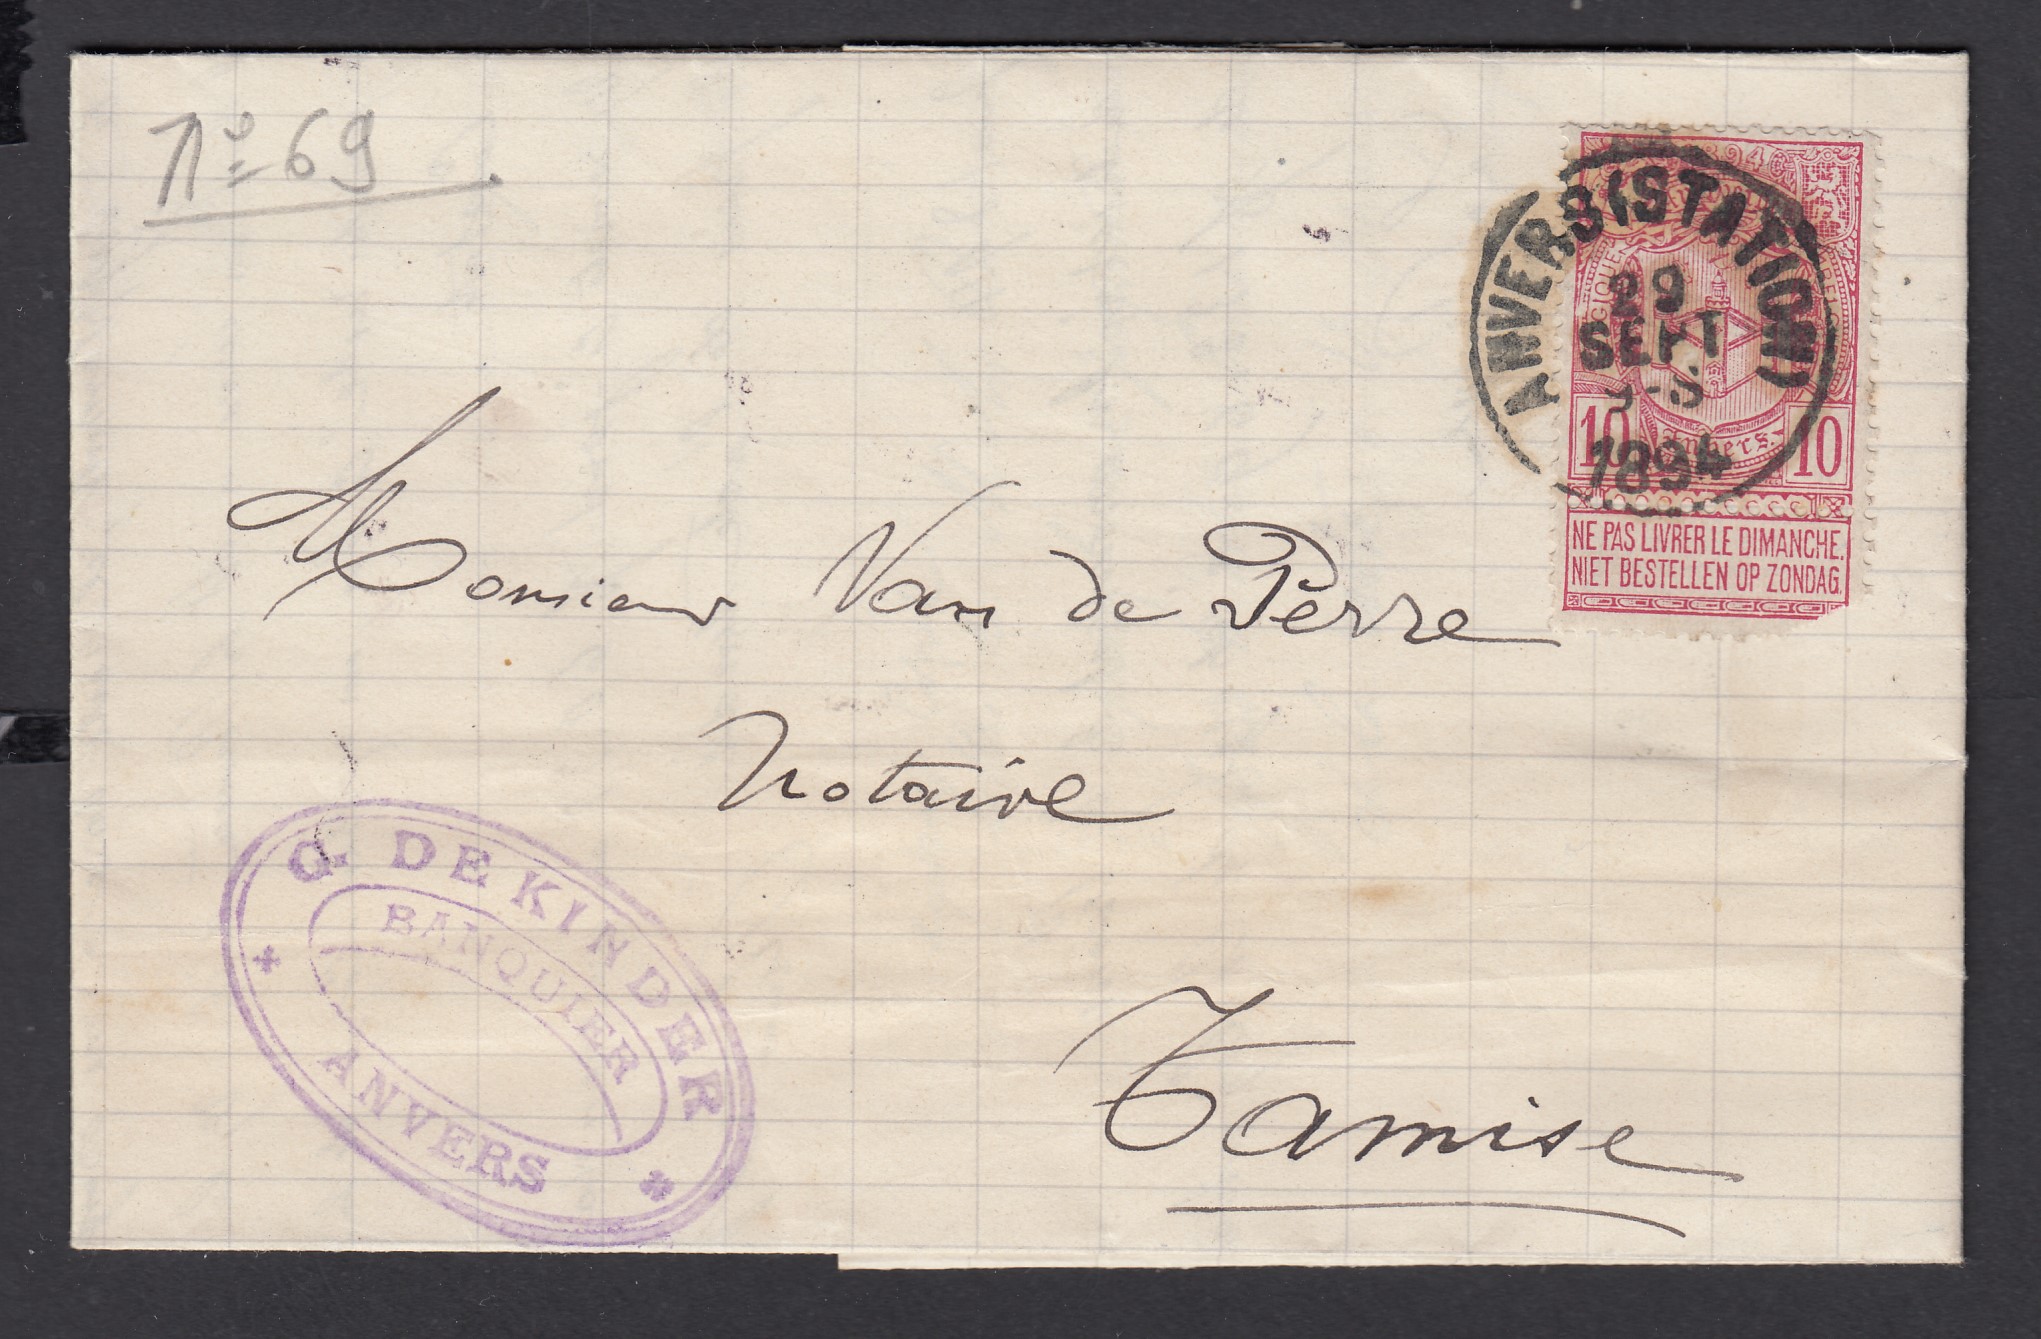 Nº 69
ANVERS (STATION)
29
SEPT
1894
10 Anvers 10
NE PAS LIVRER LE DIMANCHE.
NIET BESTELLEN OP ZONDAG.
Monsieur Van de Perre
Notaire
Tamise
G. DEKINDER
BANQUIER
ANVERS